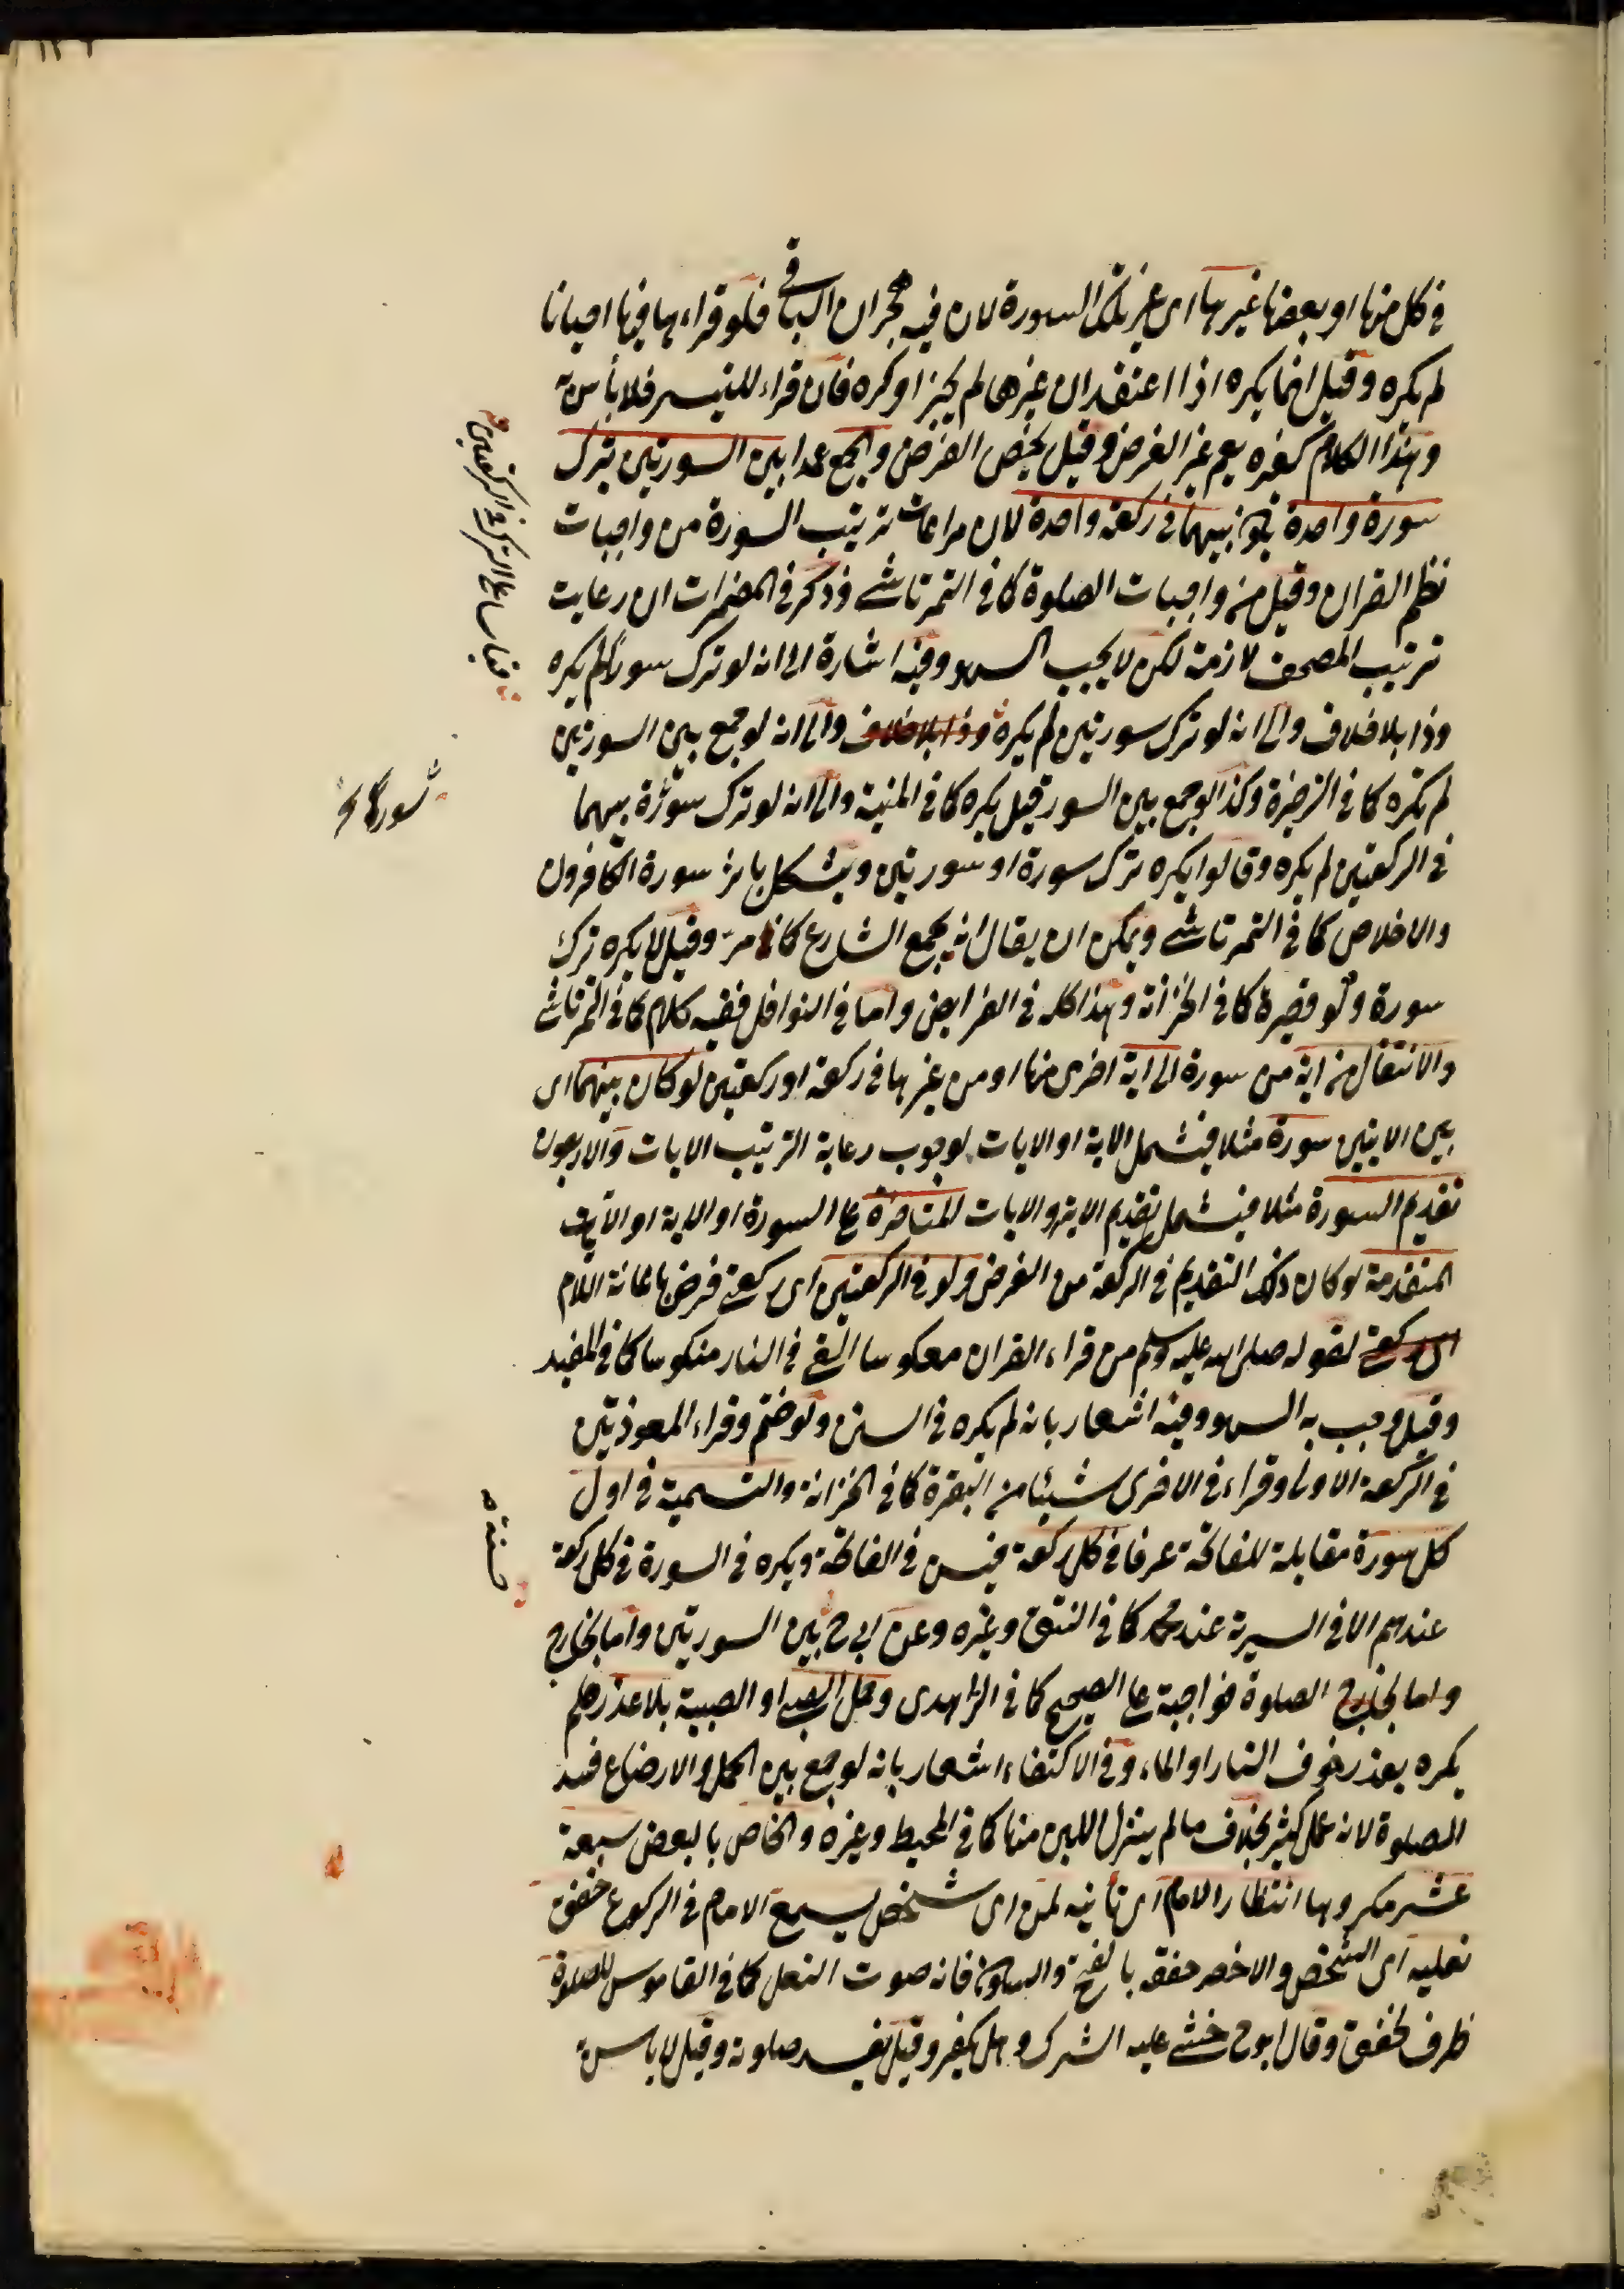 في كل منها او بعضها غيرها اى غير تلك السورة لان فيه هجران الباقى فلو قراءها فيها احيانا
لم يكره وقيل انما يكره اذا اعتقد ان غيرها لم يجز او كره فان قراء لليتيسر فلا بأس به
وهذا الكلام كغيره يعم غير الفرض وقيل يخص الفرض والجمع عمدا بين السورتين بترك
سورة واحدة بينهما في ركعة واحدة لان مراعات ترتيب السورة من واجبات
نظم القران وقيل من واجبات الصلوة كما في التمرتاشي وذكر في المضمرات ان رعايت
ترتيب المصحف لازمة لكن لا يجب السهو وفيه اشارة الى انه لو ترك سورا لم يكره
وذا بلا خلاف والى انه لو ترك سورتين لم يكره وذا بلا خلاف والى انه لو جمع بين السورتين
لم يكره كما في الذخيرة وكذا لو جمع بين السور قيل يكره كما في المنية والى انه لو ترك سورة بينهما
في الركعتين لم يكره وقالوا يكره ترك سورة او سورتين ويشكل باثر سورة الكافرون
والاخلاص كما في التمرتاشي ويمكن ان يقال انه بجمع الشارع كما مر وقيل لا يكره ترك
سورة ولو قصيرة كما في الخزانة وهذا كله في الفرايض واما في النوافل ففيه كلام كما في التمرتاشي
والانتقال من اية من سورة الى اية اخرى منها او من غيرها في ركعة او ركعتين لو كان بينهما اى
بين الايتين سورة مثلا فيشمل الاية او الايات لوجوب رعاية الترتيب الايات والاربعون
تقديم السورة مثلا فيشمل تقديم الاية والايات المتاخرة على السورة او الاية او الآيات
المتقدمة لو كان ذلك التقديم في الركعة من الفرض ولو في الركعتين اى ركعتى فرض بإعانة اللام
اى ركعتى لقوله صلى الله عليه وسلم من قراء القران معكوسا القى في النار منكوسا كما في المفيد
وقيل وجب به السهو وفيه اشعار بانه لم يكره في السنن ولو ختم وقراء المعوذتين
في الركعة الاولى وقراء في الاخرى شيئا من البقرة كما في الخزانة والتسمية في اول
كل سورة مقابلة للفاتحة عرفا في كل ركعة فيسن في الفاتحة ويكره في السورة في كل ركعة
عندهم الا في السرية عند محمد كما في النتف وغيره وعن ابى ح بين السورتين واما بخارج
واما بخارج الصلوة فواجبة على الصحيح كما في الزاهدى وحمل الصبى او الصبية بلا عذر فلم
يكره بعذر خوف النار او الماء وفي الاكتفاء اشعار بانه لو جمع بين الحمل والارضاع فسد
الصلوة لانه عمل كثير بخلاف ما لم ينزل اللبن منها كما في المحيط وغيره والخاص بالبعض سبعة
عشر مكروها انتظار الامام اى تأنيه لمن اى شخص يسمع الامام في الركوع خفق
نعليه اى الشخص والاخصر خفقه بالفتح والسكون فانه صوت النعل كما في القاموس للصلوة
ظرف لخفق وقال ابو ح خشى عليه الشرك وهل يكفر وقيل يفسد صلوته وقيل لا بأس به
قياسا على الترك في الركعتين
حسنة